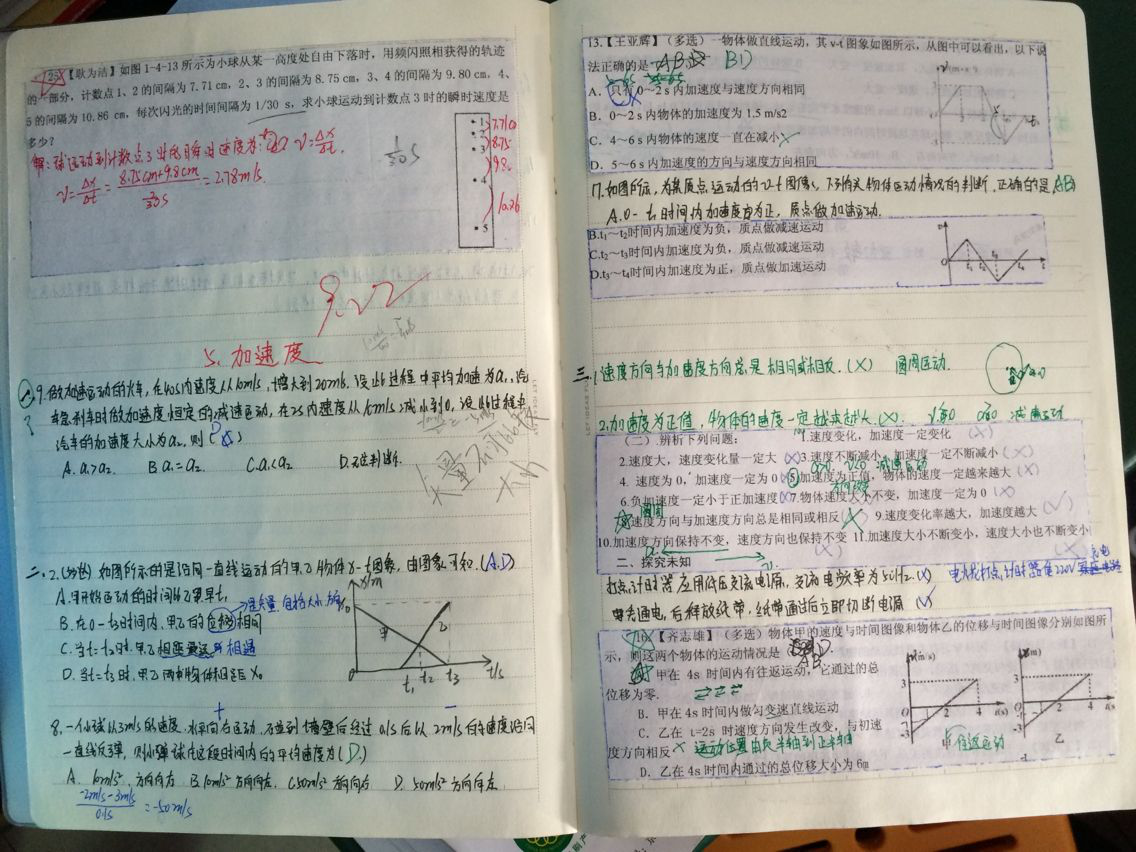 【耿为洁】如图1-4-13所示为小球从某一高度处自由下落时，用频闪照相获得的轨迹
的一部分，计数点1、2的间隔为7.71 cm，2、3的间隔为8.75 cm，3、4的间隔为9.80 cm，4、
5的间隔为10.86 cm，每次闪光的时间间隔为1/30 s，求小球运动到计数点3时的瞬时速度是
多少？
解：球运动到计数点3时的瞬时速度为： v=Δx/Δt.
v=Δx/Δt=(8.75cm+9.8cm)/(2/30 s)=2.78m/s.
1/30 s
1
2
3
4
5
8.75
9.8
5. 加速度
9.做加速运动的火车，在40s内速度从10m/s，增大到20m/s.设此过程中平均加速为a₁，汽
车急刹车时做加速度恒定的减速运动，在2s内速度从10m/s减小到0，设此过程中
汽车的加速度大小为a₂，则（ ）
A. a₁>a₂ B a₁=a₂ C.a₁<a₂ D.无法判断.
二. 2.(多选) 如图所示的是沿同一直线运动的甲.乙物体x-t图象，由图象可知.(A.D)
A.甲开始运动的时间比乙累早t₁
B.在0-t₃时间内，甲乙的位移相同
是矢量.包括大小.方向
C.当t=t₂时.甲乙相距最远
相遇
D.当t=t₃时.甲乙两物体相距x₀
x/m
x₀
甲
乙
t₁ t₂ t₃ t/s
+ -
8.一个小球从3m/s的速度.水平向右运动.右碰到墙壁后经过0.1s后以2m/s的速度沿同
一直线反弹，则小球在这段时间内的平均速度为(D.)
A. 10m/s².方向向右 B 10m/s²方向向左. C 50m/s²方向向右 D. 50m/s²方向向左
(-2m/s-3m/s)/0.1s =-50m/s
13.【王亚辉】（多选）一物体做直线运动，其v-t图象如图所示，从图中可以看出，以下说
法正确的是 BD
A. 只有0～2 s内加速度与速度方向相同
B. 0～2 s内物体的加速度为1.5 m/s2
C. 4～6 s内物体的速度一直在减小×
D. 5～6 s内加速度的方向与速度方向相同
17.如图所示，为某质点运动的v-t图像，下列有关物体运动情况的判断.正确的是 AB
A.0-t₁时间内加速度方为正，质点做加速运动.
B.t₁～t₂时间内加速度为负，质点做减速运动
C.t₂～t₃时间内加速度为负，质点做减速运动
D.t₃～t₄时间内加速度为正，质点做加速运动
三.1速度方向与加速度方向总是相同或相反.(×) 圆周运动.
2.加速度为正值，物体的速度一定越来越大(×). 减速运动
（二）.辨析下列问题： 1.速度变化，加速度一定变化 (×)
2.速度大，速度变化量一定大 (×)3.速度不断减小，加速度一定不断减小(×)
4. 速度为0，加速度一定为0 (×)5.加速度为正值，物体的速度一定越来越大(×)
6.负加速度一定小于正加速度(×)7.物体速度大小不变，加速度一定为0 (×)
圆周
速度方向与加速度方向总是相同或相反 9.速度变化率越大，加速度越大 (√)
10.加速度方向保持不变，速度方向也保持不变 11.加速度大小不断变小，速度大小也不断变小
(×)
二、探究未知
打点计时器应用低压交流电源，交流电频率为50Hz.(×) 电火花打点计时器使220V
要先通电，后释放纸带，纸带通过后立即切断电源 (√)
16.【齐志雄】（多选）物体甲的速度与时间图像和物体乙的位移与时间图像分别如图所
示，则这两个物体的运动情况是
甲在4s时间内有往返运动，它通过的总
位移为零.
B. 甲在4s时间内做匀变速直线运动
C. 乙在 t=2s 时速度方向发生改变，与初速
度方向相反× 运动位置由负半轴到正半轴
D. 乙在4s时间内通过的总位移大小为6m
v(m/s)
3
0
2
4
t(s)
-3
甲 往返运动
x(m)
3
0
2
4
t(s)
-3
乙